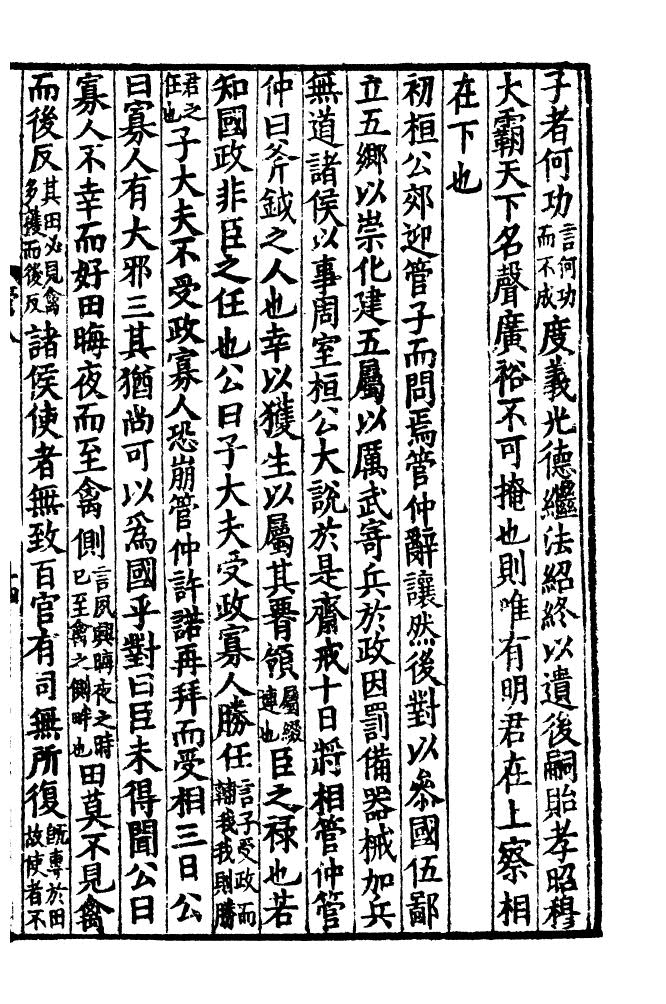 子者何功言何功而不成度義光德繼法紹終以遺後嗣貽孝昭穆
大霸天下名聲廣裕不可掩也則唯有明君在上察相
在下也
初桓公郊迎管子而問焉管仲辭讓然後對以參國伍鄙
立五鄉以崇化建五屬以厲武寄兵於政因罰備器械加兵
無道諸侯以事周室桓公大說於是齋戒十日將相管仲管
仲曰斧鉞之人也幸以獲生以屬其腰領屬綴連也臣之祿也若
知國政非臣之任也公曰子大夫受政寡人勝任言子受政而輔我我則勝
君之任也子大夫不受政寡人恐崩管仲許諾再拜而受相三日公
曰寡人有大邪三其猶尚可以爲國乎對曰臣未得聞公曰
寡人不幸而好田晦夜而至禽側言夙興晦夜之時已至禽之側畔也田莫不見禽
而後反其田必見禽多獲而後反諸侯使者無致百官有司無所復既專於田故使者不